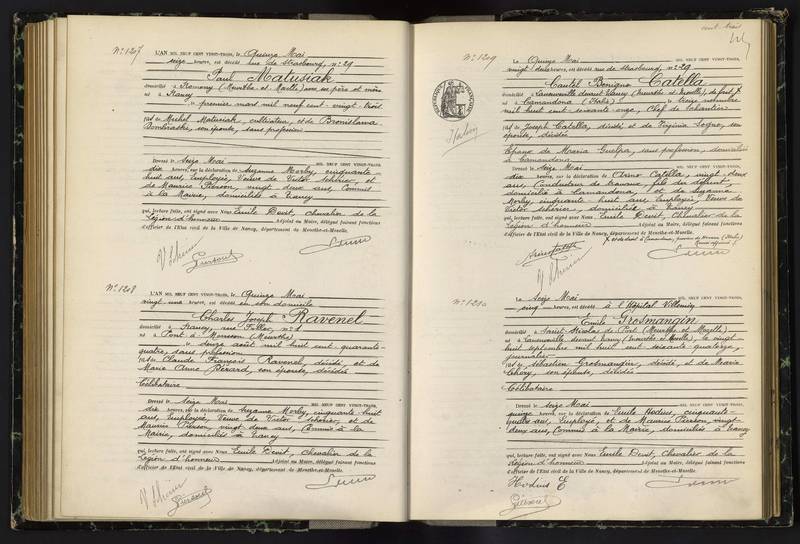 N° 1207
L'AN MIL NEUF CENT VINGT-TROIS, le Quinze Mai
seize heures, est décédé rue de Strasbourg, n° 29
Paul Matusiak
domicilié à (Meurthe et Moselle) avec ses père et mère
né à Nancy
le premier mars mil neuf cent vingt trois
fils de Michel Matusiak, cultivateur, et de Bronislawa
son épouse, sans profession
Dressé le Seize Mai MIL NEUF CENT VINGT-TROIS,
dix heures, sur la déclaration de Suzanne Morby, cinquante-
huit ans, Employée, Veuve de Victor Schérier, et
de Maurice Pierson, vingt deux ans, Commis
à la Mairie, domiciliés à Nancy
qui, lecture faite, ont signé avec Nous Emile Devit, Chevalier de la
Légion d'honneur adjoint au Maire, délégué faisant fonctions
d'officier de l'Etat civil de la Ville de Nancy, département de Meurthe-et-Moselle.
N° 1208
L'AN MIL NEUF CENT VINGT-TROIS, le Quinze Mai
vingt une heures, est décédé en son domicile
Charles Joseph Ravenel
domicilié à Nancy, rue n° 1
né à Pont à Mousson (Meurthe)
le douze août mil huit cent quarante-
quatre, sans profession
fils de Claude François Ravenel, décédé, et de
Marie Anne Bérard, son épouse, décédée
Célibataire
Dressé le Seize Mai MIL NEUF CENT VINGT-TROIS,
dix heures, sur la déclaration de Suzanne Morby, cinquante huit
ans, Employée, Veuve de Victor Schérier, et de
Maurice Pierson vingt deux ans, Commis à la
Mairie, domiciliés à Nancy
qui, lecture faite, ont signé avec Nous Emile Devit, Chevalier de la
Légion d'honneur adjoint au Maire, délégué faisant fonctions
d'officier de l'Etat civil de la Ville de Nancy, département de Meurthe-et-Moselle.
N° 1209
Le Quinze Mai MIL NEUF CENT VINGT-TROIS,
vingt deux heures, est décédé rue de Strasbourg, n° 29
Benigno Catella
domicilié à Laneuveville devant Nancy (Meurthe et Moselle), de fait X
né à Camandona (Italie) le treize novembre
mil huit cent soixante onze, Chef de Chantier
fils de Joseph Catella, décédé, et de Virginia Sogno, son
épouse, décédée
Epoux de Maria Guelpa, sans profession, domiciliée
à Camandona
Dressé le Seize Mai MIL NEUF CENT VINGT-TROIS,
dix heures, sur la déclaration de Catella, vingt deux
ans, Conducteur de travaux, fils du défunt,
domicilié à Camandona, et de Suzanne
Morby, cinquante huit ans, Employée, Veuve de
Victor Schérier, domiciliée à Nancy
qui, lecture faite, ont signé avec Nous Emile Devit, Chevalier de la
Légion d'honneur adjoint au Maire, délégué faisant fonctions
d'officier de l'Etat civil de la Ville de Nancy, département de Meurthe-et-Moselle.
X et de droit à Camandona, province de Novara (Italie)
N° 1210
Le Seize Mai MIL NEUF CENT VINGT-TROIS,
cinq heures, est décédé à l'Hôpital Villemin
Emile Grosmangin
domicilié à Saint Nicolas de Port (Meurthe et Moselle)
né à Laneuveville devant Nancy (Meurthe et Moselle), le vingt
huit septembre mil huit cent soixante quatorze,
journalier
fils de Sébastien Grosmangin, décédé, et de Marie
Théry, son épouse, décédée
Célibataire
Dressé le Seize Mai MIL NEUF CENT VINGT-TROIS,
quinze heures, sur la déclaration de Emile Hodius, cinquante-
quatre ans, Employé, et de Maurice Pierson, vingt
deux ans, Commis à la Mairie, domiciliés à Nancy
qui, lecture faite, ont signé avec Nous Emile Devit, Chevalier de la
Légion d'honneur adjoint au Maire, délégué faisant fonctions
d'officier de l'Etat civil de la Ville de Nancy, département de Meurthe-et-Moselle.
Hodius E